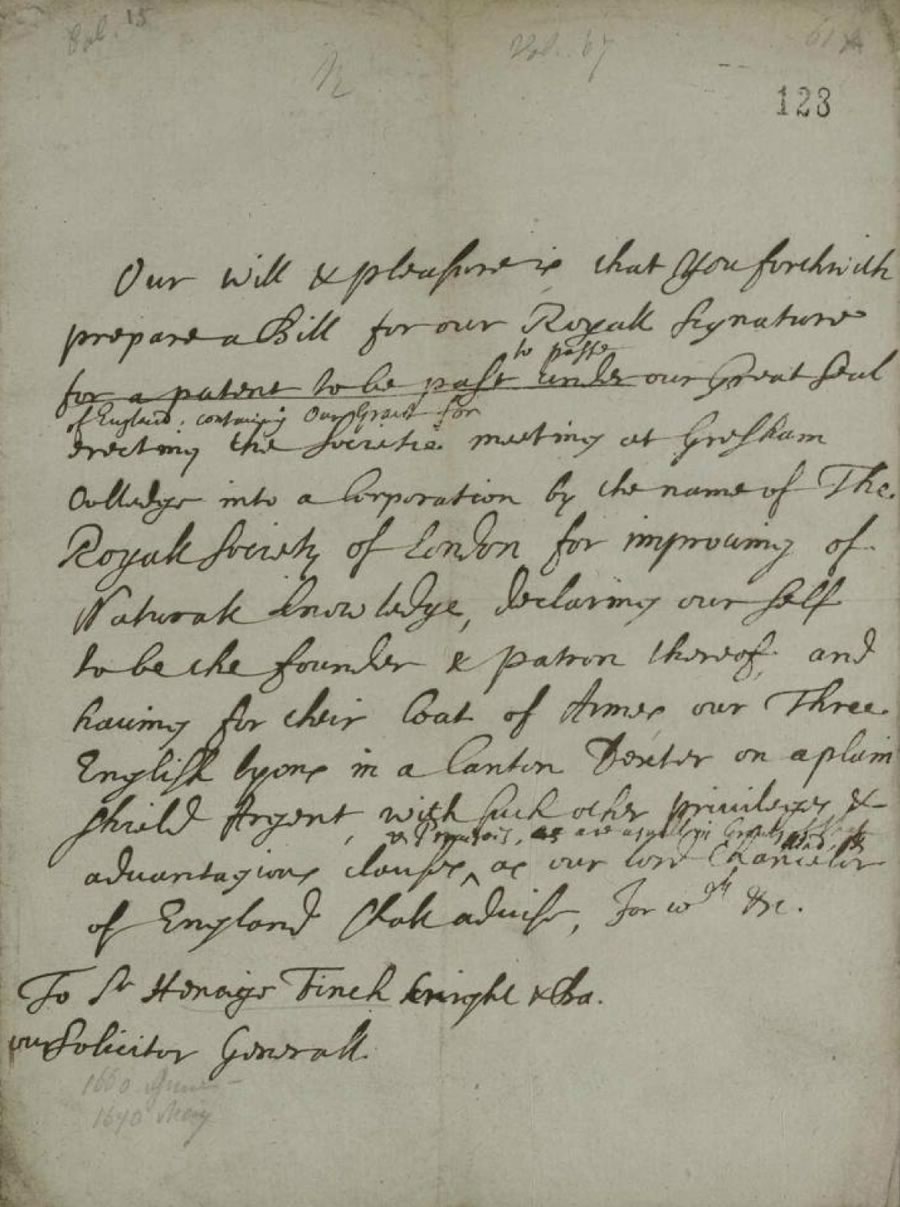 Vol. 15
Vol. 67
61
123
Our will & pleasure is that you forthwith
prepare a Bill for our Royall Signature
to passe
for a patent to be past under our Great Seal
of England, containing Our Grant for
erecting the Societie meeting at Gresham
Colledge into a Corporation by the name of The
Royall Society of London for improuing of
Naturall knowledge, declaring our self
to be the founder & patron thereof, and
hauing for their Coat of Armes our Three
English lyons in a Canton Dexter on a plain
shield Argent, with such other priuileges &
as are usuall in Grants
aduantagious clauses, as our lord Chancelor
of England shall aduise, For wch &c.
To Sr Heneage Finch knight & Ba.
our Solicitor Generall.
1660 June
1670 May